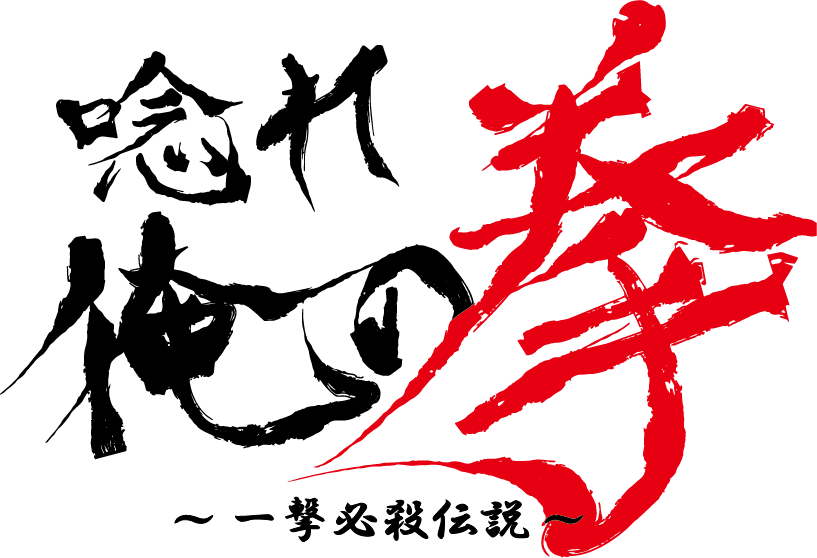 唸れ
俺の拳
～一撃必殺伝説～